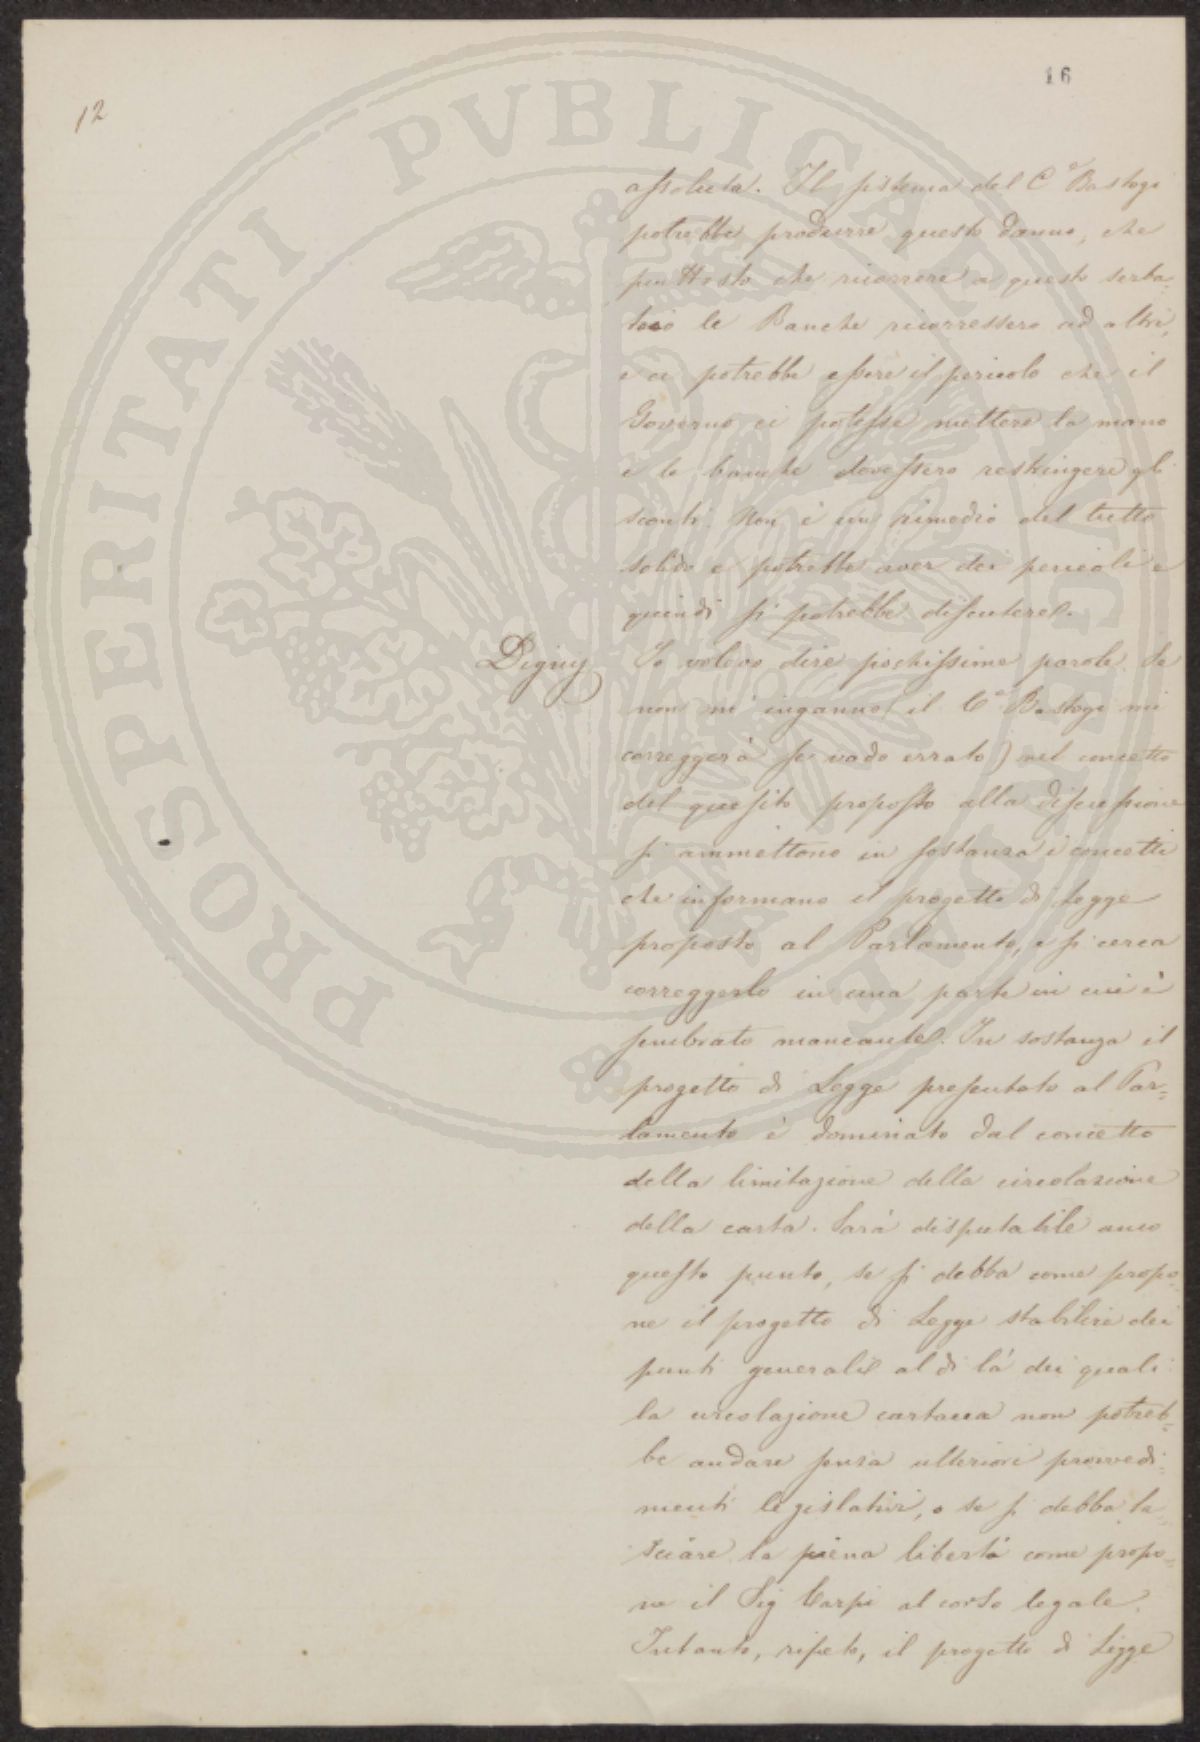 16
12
PROSPERITATI PVBLICAE AVGENDAE
assoluta. Il sistema del C.e Bastogi
potrebbe produrre questo danno, che
piuttosto che ricorrere a questo serba-
toio le Banche ricorressero ad altri,
e ci potrebbe essere il pericolo che il
Governo ci potesse mettere la mano
e le banche dovessero restringere gli
sconti. Non è un rimedio del tutto
solido e potrebbe aver dei pericoli e
quindi si potrebbe discutere.
Digny Io volevo dire pochissime parole. Se
non m'inganno (il C.e Bastogi mi
correggerà se vado errato) nel concetto
del quesito proposto alla discussione
si ammettono in sostanza i concetti
che informano il progetto di Legge
proposto al Parlamento, e si cerca
correggerlo in una parte in cui è
sembrato mancante. In sostanza il
progetto di Legge presentato al Par=
lamento è dominato dal concetto
della limitazione della circolazione
della carta. Sarà disputabile anco
questo punto, se si debba come propo=
ne il progetto di Legge stabilire dei
punti generali al di là dei quali
la circolazione cartacea non potreb=
be andare senza ulteriori provvedi=
menti legislativi, o se si debba la=
sciare la piena libertà come propo=
ne il Sig Carpi al corso legale.
Intanto, ripeto, il progetto di Legge